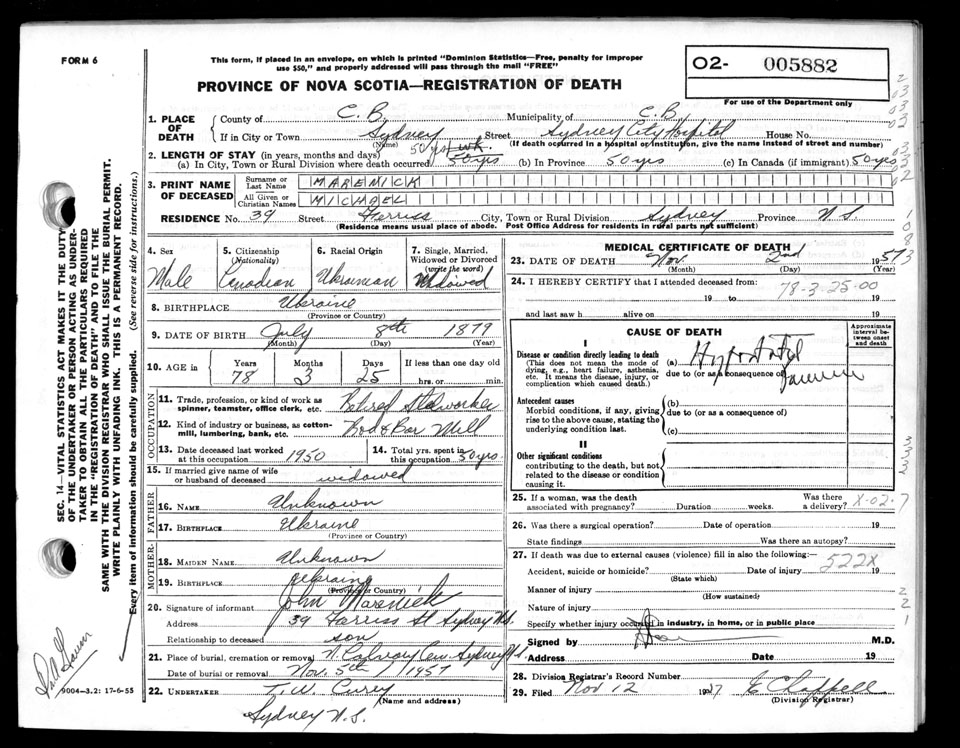 FORM 6
This form, if placed in an envelope, on which is printed "Dominion Statistics—Free, penalty for improper
use $50," and properly addressed will pass through the mail "FREE"
PROVINCE OF NOVA SCOTIA—REGISTRATION OF DEATH
O2- 005882
For use of the Department only
1. PLACE OF DEATH County of C. B. Municipality of C. B.
If in City or Town Sydney (Name) Street Sydney City Hospital House No.
(If death occurred in a hospital or institution, give the name instead of street and number)
2. LENGTH OF STAY (in years, months and days) 50 yrs
(a) In City, Town or Rural Division where death occurred 50 yrs (b) In Province 50 yrs (c) In Canada (if immigrant) 50 yrs
3. PRINT NAME OF DECEASED
Surname or Last Name MARENICK
All Given or Christian Names MICHAEL
RESIDENCE No. 39 Street Ferriss City, Town or Rural Division Sydney Province N.S.
(Residence means usual place of abode. Post Office Address for residents in rural parts not sufficient)
4. Sex Male
5. Citizenship (Nationality) Canadian
6. Racial Origin Ukrainian
7. Single, Married, Widowed or Divorced (write the word) Widowed
8. BIRTHPLACE Ukraine
(Province or Country)
9. DATE OF BIRTH July 8th 1879
(Month) (Day) (Year)
10. AGE in Years 78 Months 3 Days 25 If less than one day old
hrs. or min.
OCCUPATION
11. Trade, profession, or kind of work as spinner, teamster, office clerk, etc. Retired Steelworker
12. Kind of industry or business, as cotton-mill, lumbering, bank, etc. Rod & Bar Mill
13. Date deceased last worked at this occupation 1950
14. Total yrs. spent in this occupation 50 yrs
15. If married give name of wife or husband of deceased widowed
FATHER
16. NAME Unknown
17. BIRTHPLACE Ukraine
(Province or Country)
MOTHER
18. MAIDEN NAME Unknown
19. BIRTHPLACE Ukraine
(Province or Country)
20. Signature of informant John Marenick
Address 39 Ferriss St Sydney N.S.
Relationship to deceased son
21. Place of burial, cremation or removal N. Calvary Cem Sydney N.S.
Date of burial or removal Nov. 5th / 1957
22. UNDERTAKER T. W. Curry
(Name and address)
Sydney N.S.
MEDICAL CERTIFICATE OF DEATH
23. DATE OF DEATH Nov. 2nd 1957
(Month) (Day) (Year)
24. I HEREBY CERTIFY that I attended deceased from:
78-3-25-00
19 to 19
and last saw h alive on 19
CAUSE OF DEATH
Approximate interval between onset and death
I
Disease or condition directly leading to death
(This does not mean the mode of dying, e.g., heart failure, asthenia, etc. It means the disease, injury, or complication which caused death.)
(a)
due to (or as a consequence of)
Antecedent causes
Morbid conditions, if any, giving rise to the above cause, stating the underlying condition last.
(b)
due to (or as a consequence of)
(c)
II
Other significant conditions
contributing to the death, but not related to the disease or condition causing it.
25. If a woman, was the death associated with pregnancy? Duration weeks. Was there a delivery? X-02-7
26. Was there a surgical operation? Date of operation 19
State findings Was there an autopsy?
27. If death was due to external causes (violence) fill in also the following:—
522X
Accident, suicide or homicide? Date of injury 19
(State which)
Manner of injury
(How sustained)
Nature of injury
Specify whether injury occurred in industry, in home, or in public place
Signed by M.D.
Address Date 19
28. Division Registrar's Record Number
29. Filed Nov 12 1957 E Chappell
(Division Registrar)
SEC. 14—VITAL STATISTICS ACT MAKES IT THE DUTY
OF THE UNDERTAKER OR PERSON ACTING AS UNDER-
TAKER TO OBTAIN ALL THE PARTICULARS REQUIRED
IN THE "REGISTRATION OF DEATH" AND TO FILE THE
SAME WITH THE DIVISION REGISTRAR WHO SHALL ISSUE THE BURIAL PERMIT.
WRITE PLAINLY WITH UNFADING INK. THIS IS A PERMANENT RECORD.
Every item of information should be carefully supplied. (See reverse side for instructions.)
9004—3.2: 17-6-55